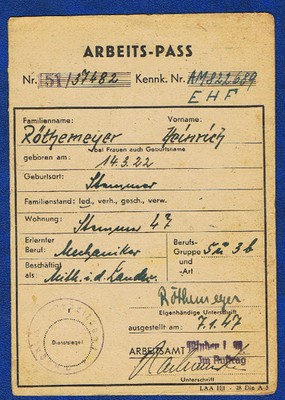 ARBEITS-PASS
Nr. 51/37482 Kennk. Nr. AM821689
EHF
Familienname: Vorname:
Röthemeyer Heinrich
bei Frauen auch Geburtsname
geboren am: 14.3.22
Geburtsort: Stemmer
Familienstand: led., verh., gesch., verw.
Wohnung: Stemmer 47
Erlernter
Beruf: Mechaniker
Berufs-
Gruppe 5a 3b
und
-Art
Beschäftigt
als: Mith. i. d. Landw.
Röthemeyer
Eigenhändige Unterschrift
ausgestellt am: 7.1.47
Dienstsiegel
ARBEITSAMT Minden i. W.
Im Auftrag
Unterschrift
LAA III - 28 Din A 5